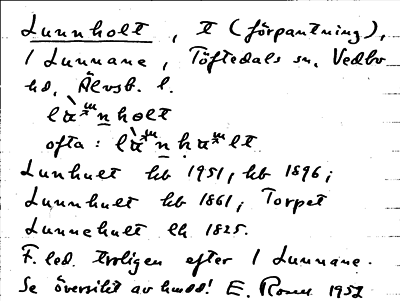 Lunnholt, t (förpantning),
1 Lunnane, Töftedals sn, Vedbo
hd, Älvsb. l.
ofta:
Lunhult kb 1951, kb 1896;
Lunnhult kb 1861; Torpet
Lunnehult lh 1825.
F. led. troligen efter 1 Lunnane.
Se översikt av huvud! E. Rosell 1952